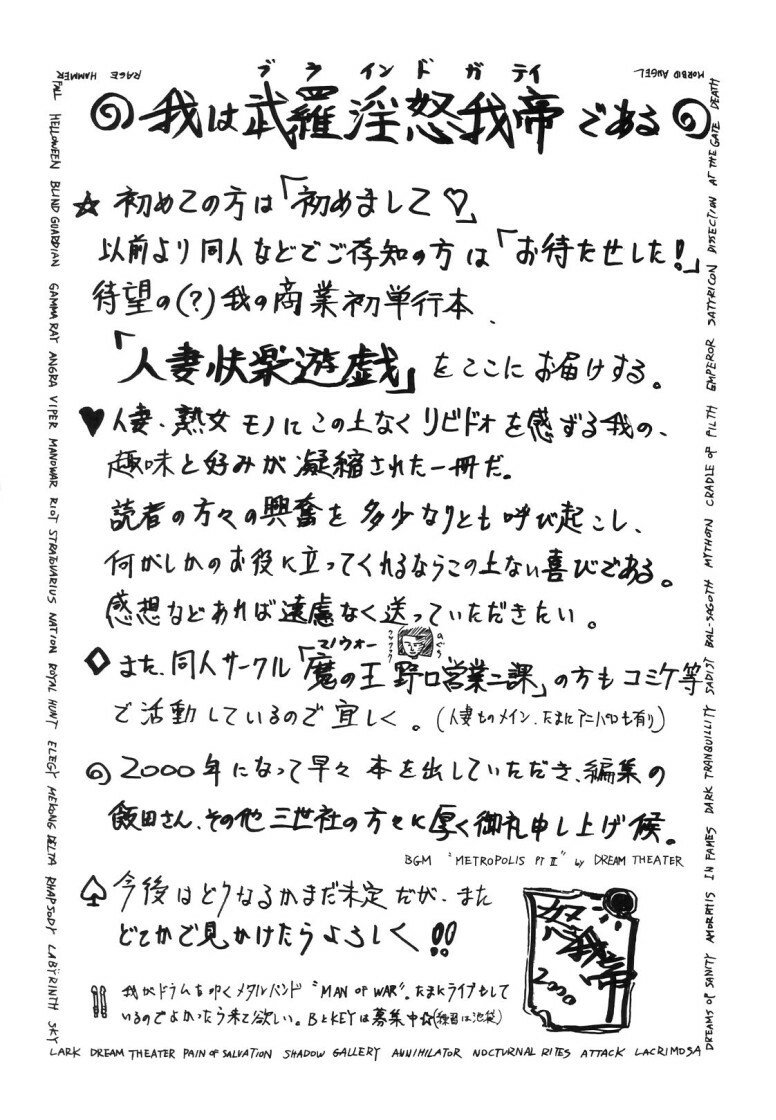 ブラインドガティ
我は武羅淫怒我帝である
☆初めての方は「初めまして♡」
以前より同人などでご存知の方は「お待たせした!」
待望の(?)我の商業初単行本、
「人妻快楽遊戯」をここにお届けする。
♥人妻、熟女モノにこの上なくリビドォを感ずる我の、
趣味と好みが凝縮された一冊だ。
読者の方々の興奮を多少なりとも呼び起こし、
何がしかのお役に立ってくれるならこの上ない喜びである。
感想などあれば遠慮なく送っていただきたい。
マノウォー
◇また、同人サークル「魔の王 野口営業二課」の方もコミケ等
で活動しているので宜しく。(人妻ものメイン、たまにアニパロも有り)
2000年になって早々本を出していただき、編集の
飯田さん、その他三世社の方々に厚く御礼申し上げ候。
BGM "METROPOLIS PT II" by DREAM THEATER
♤今後はどうなるかまだ未定だが、また
どこかで見かけたらよろしく!!
我がドラムを叩くメタルバンド"MAN OF WAR"。たまにライブもして
いるのでよかったら来て欲しい。BとKEYは募集中☆(練習は池袋)
怒我帝
2000
HAMMER FALL HELLOWEEN BLIND GUARDIAN GAMMA RAY ANGRA VIPER MANOWAR RIOT STRATOVARIUS NATION ROYAL HUNT ELEGY MEKONG DELTA RHAPSODY LABYRINTH SKY
LARK DREAM THEATER PAIN OF SALVATION SHADOW GALLERY ANNIHILATOR NOCTURNAL RITES ATTACK LACRIMOSA
DREAMS OF SANITY AMORPHIS IN FAMES DARK TRANQUILLITY SADIST BAL-SAGOTH MYTHOTN CRADLE OF FILTH EMPEROR SATYRICON DISSECTION AT THE GATE DEATH
MORBID ANGEL
RAGE